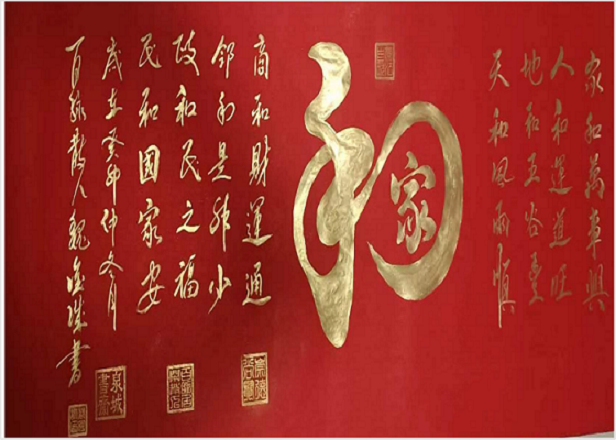 家和萬事興
人和運道旺
地和五谷豐
天和風雨順
和
家
商和財運通
邻和是非少
政和民之福
民和國家安
歲在癸卯仲冬月
百脉散人魏書
泉城